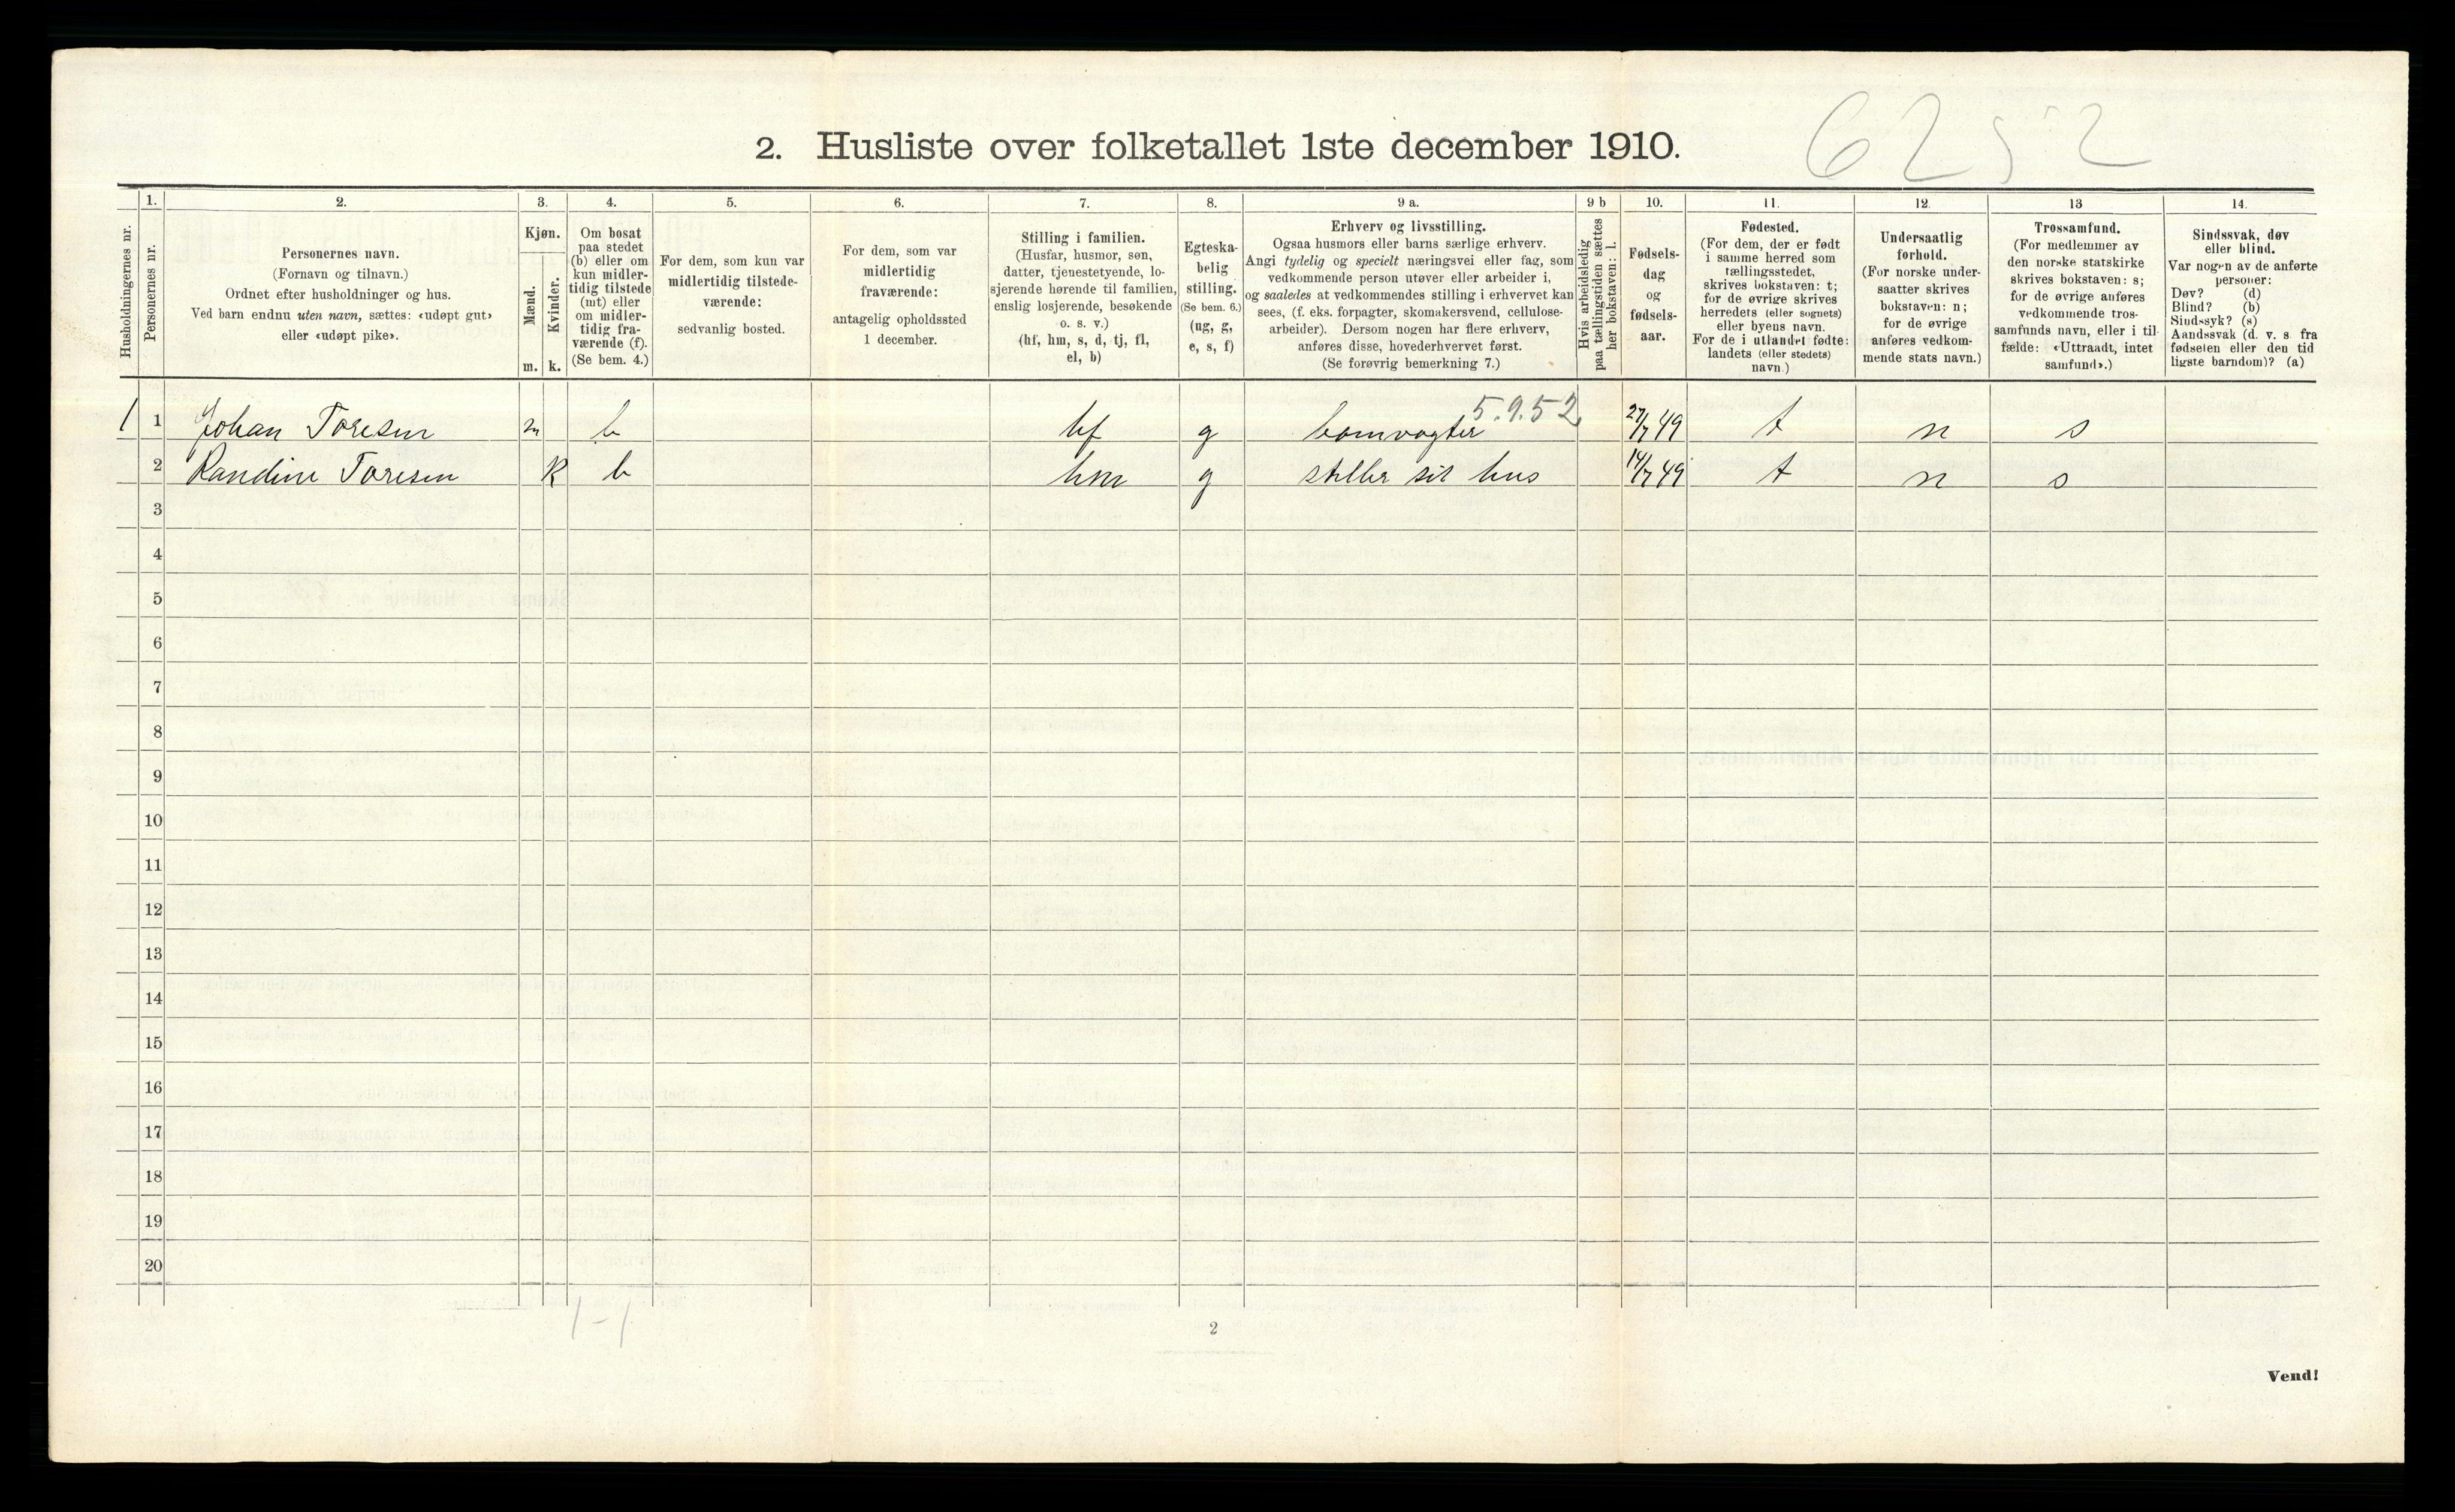 6252
2. Husliste over folketallet 1ste december 1910.
Husholdningernes nr.
1.
Personernes nr.
2.
Personernes navn.
(Fornavn og tilnavn.)
Ordnet efter husholdninger og hus.
Ved barn endnu uten navn, sættes: «udøpt gut»
eller «udøpt pike».
3.
Kjøn.
Mænd.
Kvinder.
m. k.
4.
Om bosat
paa stedet
(b) eller om
kun midler-
tidig tilstede
(mt) eller
om midler-
tidig fra-
værende (f).
(Se bem. 4.)
5.
For dem, som kun var
midlertidig tilstede-
værende:
sedvanlig bosted.
6.
For dem, som var
midlertidig
fraværende:
antagelig opholdssted
1 december.
7.
Stilling i familien.
(Husfar, husmor, søn,
datter, tjenestetyende, lo-
sjerende hørende til familien,
enslig losjerende, besøkende
o. s. v.)
(hf, hm, s, d, tj, fl,
el, b)
8.
Egteska-
belig
stilling.
(Se bem. 6.)
(ug, g,
e, s, f)
9 a.
Erhverv og livsstilling.
Ogsaa husmors eller barns særlige erhverv.
Angi tydelig og specielt næringsvei eller fag, som
vedkommende person utøver eller arbeider i,
og saaledes at vedkommendes stilling i erhvervet kan
sees, (f. eks. forpagter, skomakersvend, cellulose-
arbeider). Dersom nogen har flere erhverv,
anføres disse, hovederhvervet først.
(Se forøvrig bemerkning 7.)
9 b
Hvis arbeidsledig
paa tællingstiden sættes
her bokstaven: l.
10.
Fødsels-
dag
og
fødsels-
aar.
11.
Fødested.
(For dem, der er født
i samme herred som
tællingsstedet,
skrives bokstaven: t;
for de øvrige skrives
herredets (eller sognets)
eller byens navn.
For de i utlandet fødte:
landets (eller stedets)
navn.)
12.
Undersaatlig
forhold.
(For norske under-
saatter skrives
bokstaven: n;
for de øvrige
anføres vedkom-
mende stats navn.)
13
Trossamfund.
(For medlemmer av
den norske statskirke
skrives bokstaven: s;
for de øvrige anføres
vedkommende tros-
samfunds navn, eller i til-
fælde: «Uttraadt, intet
samfund».)
14.
Sindssvak, døv
eller blind.
Var nogen av de anførte
personer:
Døv? (d)
Blind? (b)
Sindssyk? (s)
Aandssvak (d. v. s. fra
fødselen eller den tid
ligste barndom)? (a)
5.9.52
1 1 Johan Toresen m b hf g bomvogter 27/7 49 t n s
2 Randine Toresen k b hm g steller sit hus 14/7 49 t n s
3
4
5
6
7
8
9
10
11
12
13
14
15
16
17
18
19
20
1-1
2
Vend!